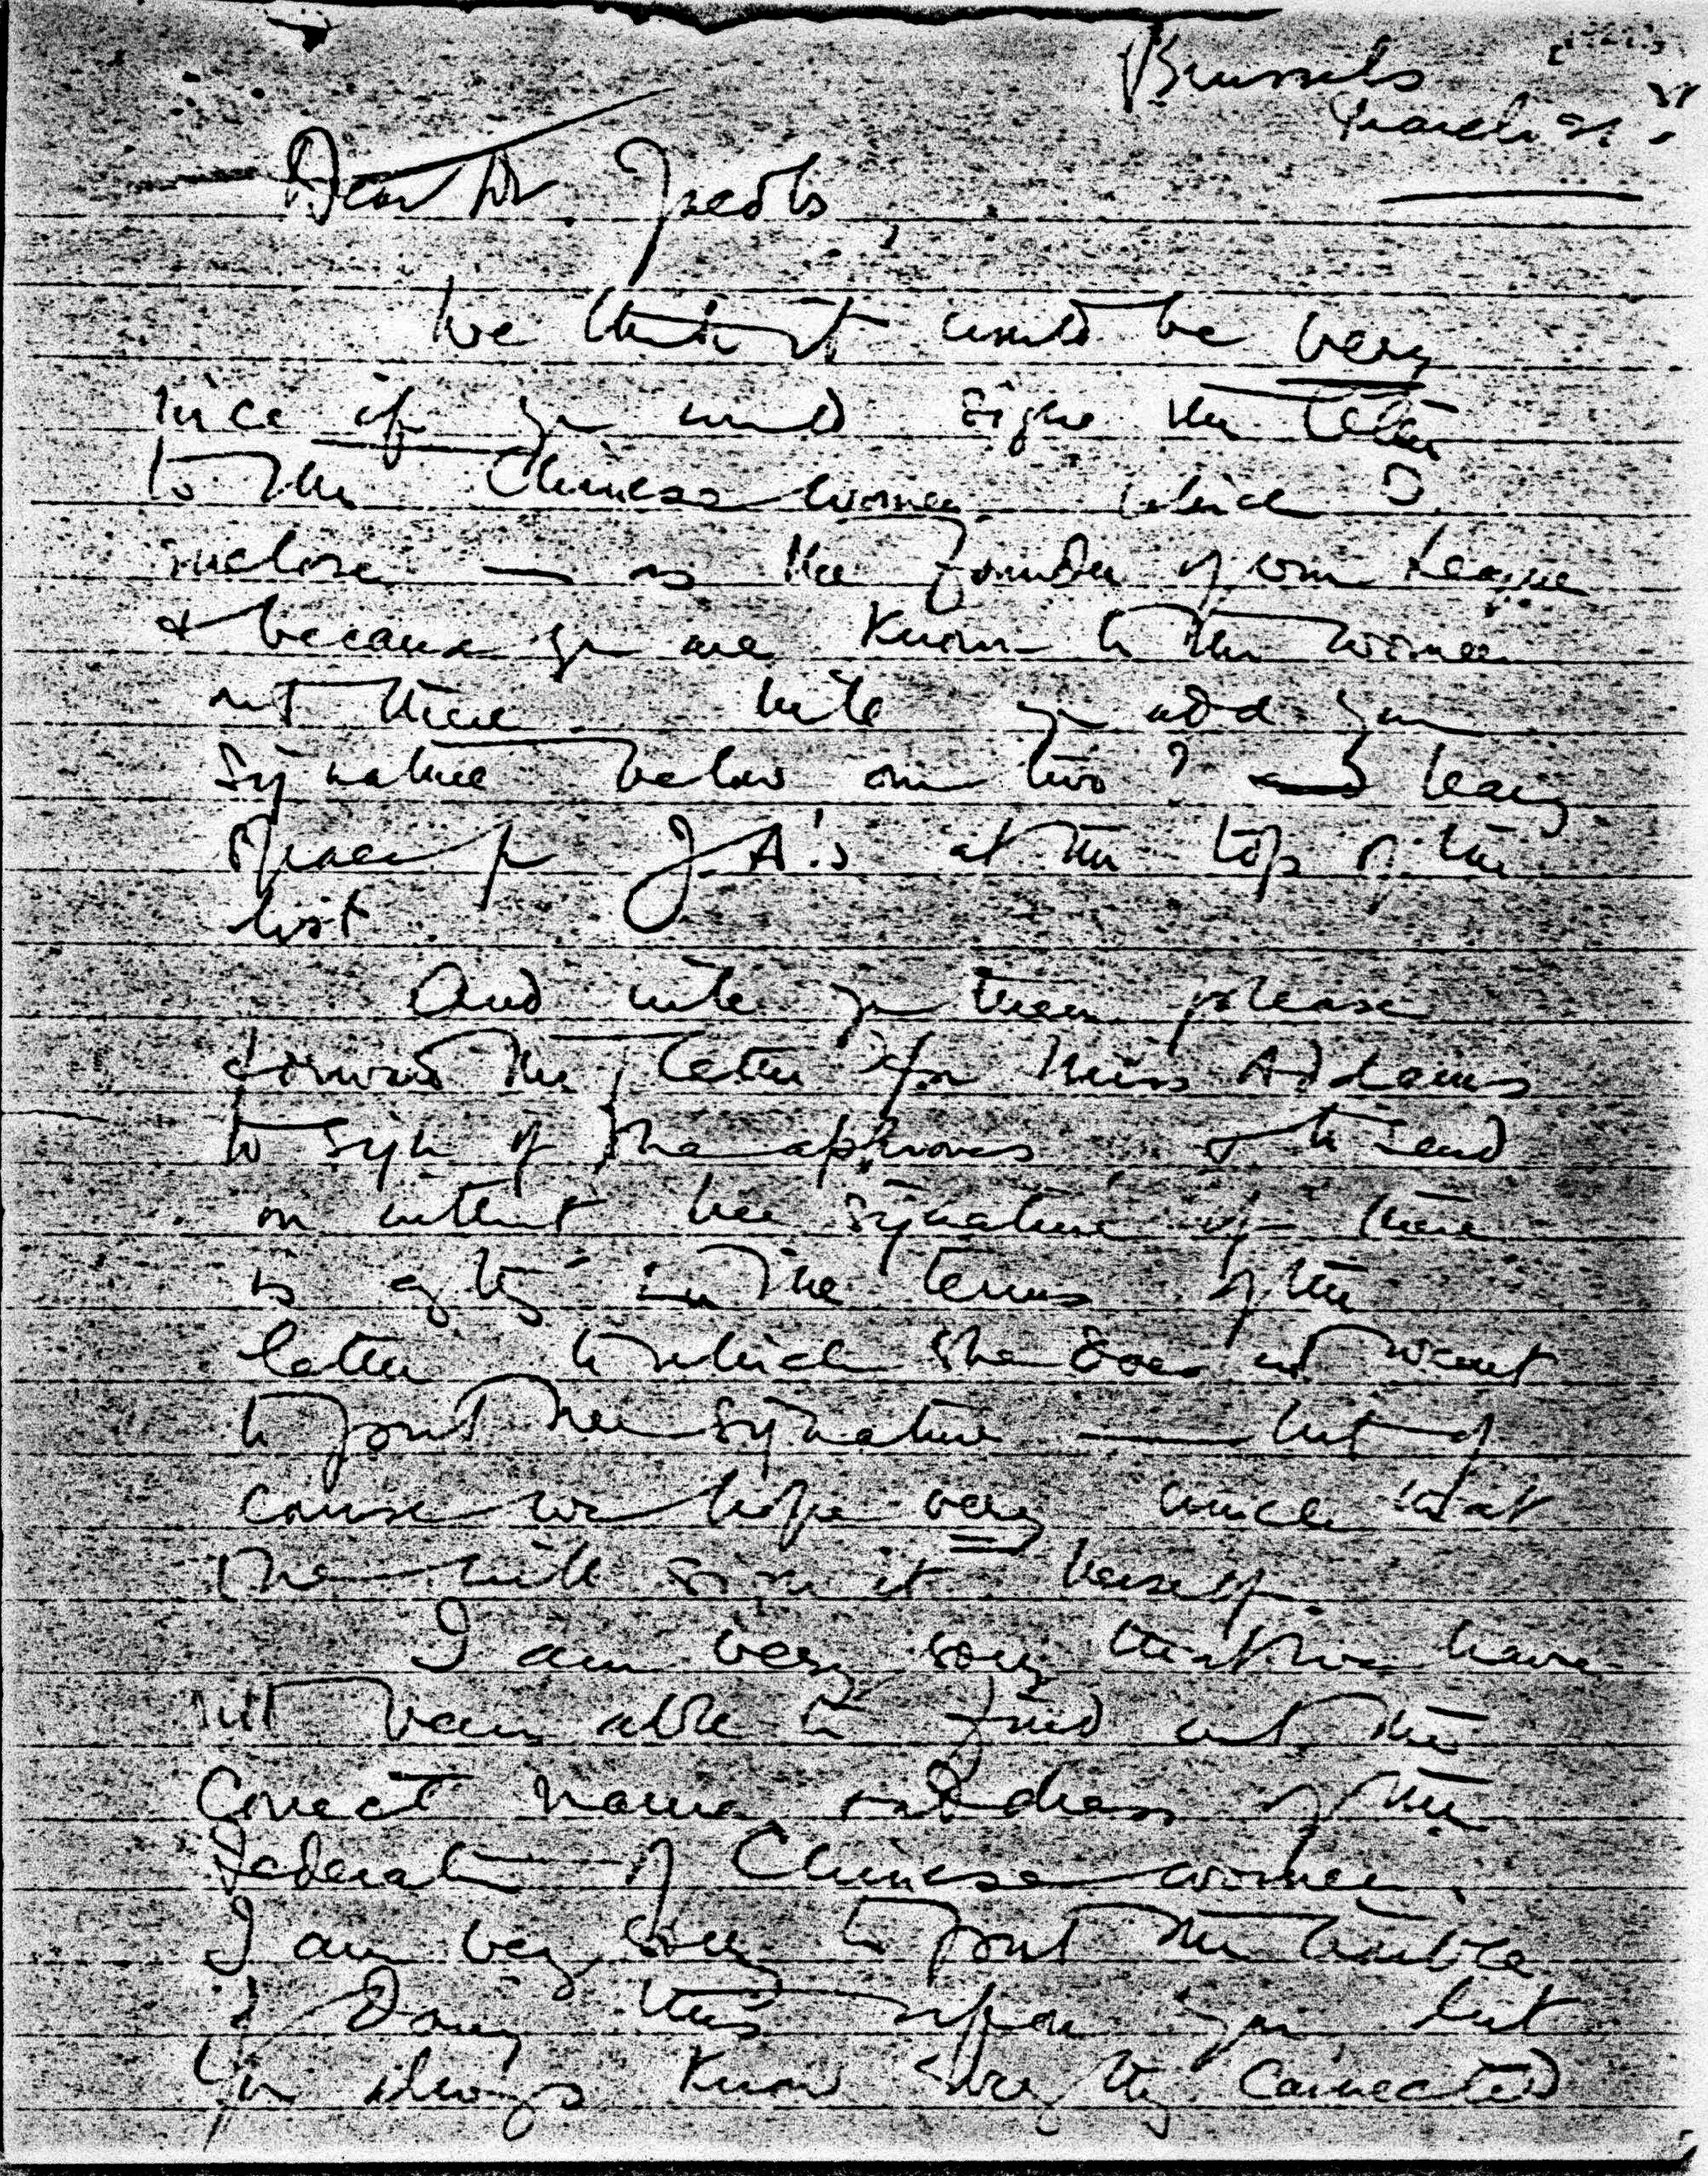 Brussels
March 21.
Dear Dr. Jacobs,
We think it would be very
nice if you would sign the letter
to the Chinese women which I
inclose — as the founder of our League
& because you are known to the women
out there. Will you add your
signature below our two? and leave
space for J.A.'s at the top of the
list.
And will you then please
forward the letter for Miss Addams
to sign if she approves & to send
on without her signature if there
is anything in the terms of the
letter to which she does not want
to put her signature — but of
course we hope very much that
she will sign it herself.
I am very sorry that we have
not been able to find out the
correct name & address of the
Federation of Chinese women.
I am very sorry to put the trouble
of doing this upon you but
you always know everything connected